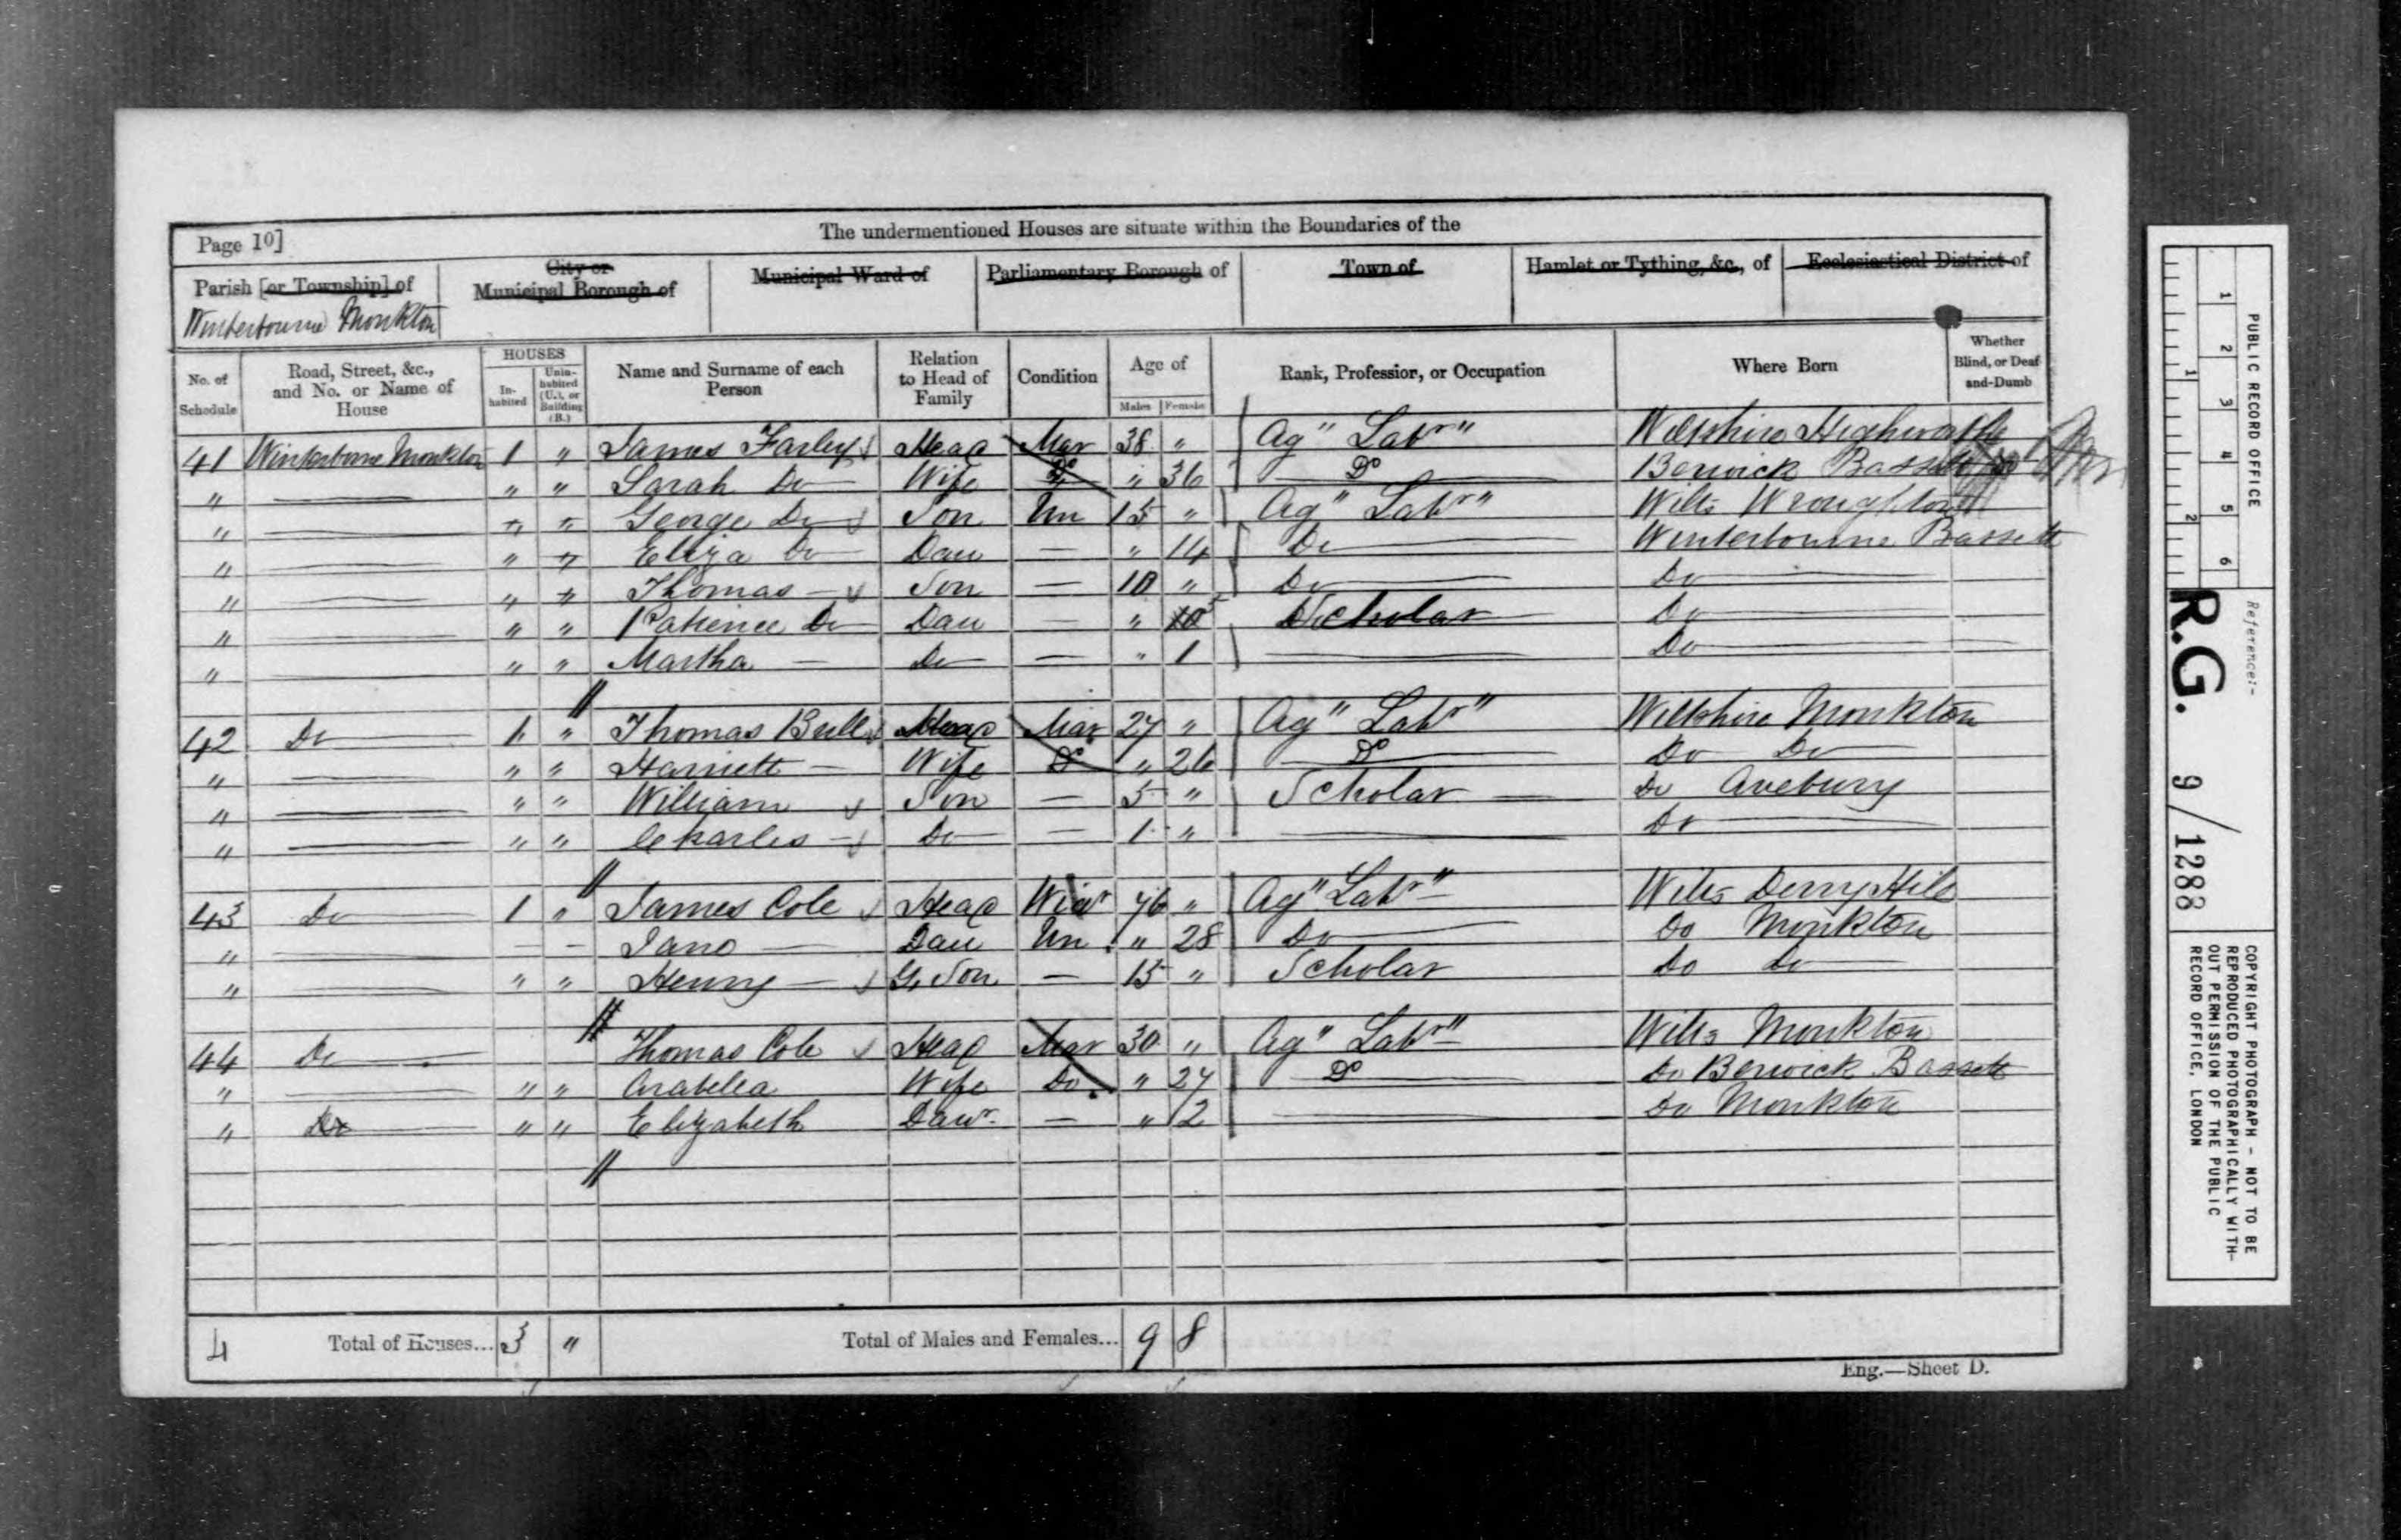 Page 10]
The undermentioned Houses are situate within the Boundaries of the
Parish [or Township] of
Winterbourne Monkton
City or
Municipal Borough of
Municipal Ward of
Parliamentary Borough of
Town of
Hamlet or Tything, &c., of
Ecclesiastical District of
No. of Schedule
Road, Street, &c., and No. or Name of House
HOUSES
In-habited
Unin-habited (U.), or Building (B.)
Name and Surname of each Person
Relation to Head of Family
Condition
Age of
Males Females
Rank, Profession, or Occupation
Where Born
Whether Blind, or Deaf-and-Dumb
41 Winterbourne Monkton 1 " James Farley Head Mar 38 " Ag" Labr" Wiltshire Highworth
" " " Sarah Do Wife Do " 36 Do Berwick Bassett
" " " George Do Son Un 15 " Ag" Labr" Wilts Wroughton
" " " Eliza Do Dau — " 14 Do Winterbourne Bassett
" " " Thomas — Son — 10 " Do Do
" " " Patience Do Dau — " 5 Scholar Do
" " " Martha — Do — " 1 Do
42 Do 1 " Thomas Bull Head Mar 27 " Ag" Labr" Wiltshire Monkton
" " " Harriett — Wife Do " 26 Do Do Do
" " " William Son — 5 " Scholar Do Avebury
" " " Charles — Do — 1 " Do
43 Do 1 " James Cole Head Widr 76 " Ag" Labr" Wilts Derry Hill
" — — Jane — Dau Un " 28 Do Do Monkton
" " " Henry — G. Son — 15 " Scholar Do Do
44 Do Thomas Cole Head Mar 30 " Ag" Labr" Wilts Monkton
" " " Arabella Wife Do " 27 Do Do Berwick Bassett
" Do " " Elizabeth Daur — " 2 Do Monkton
4 Total of Houses... 3 " Total of Males and Females... 9 8
Eng.—Sheet D.
PUBLIC RECORD OFFICE
1 2 3 4 5 6
1 2
Reference:-
R.G. 9/1288
COPYRIGHT PHOTOGRAPH - NOT TO BE
REPRODUCED PHOTOGRAPHICALLY WITH-
OUT PERMISSION OF THE PUBLIC
RECORD OFFICE, LONDON